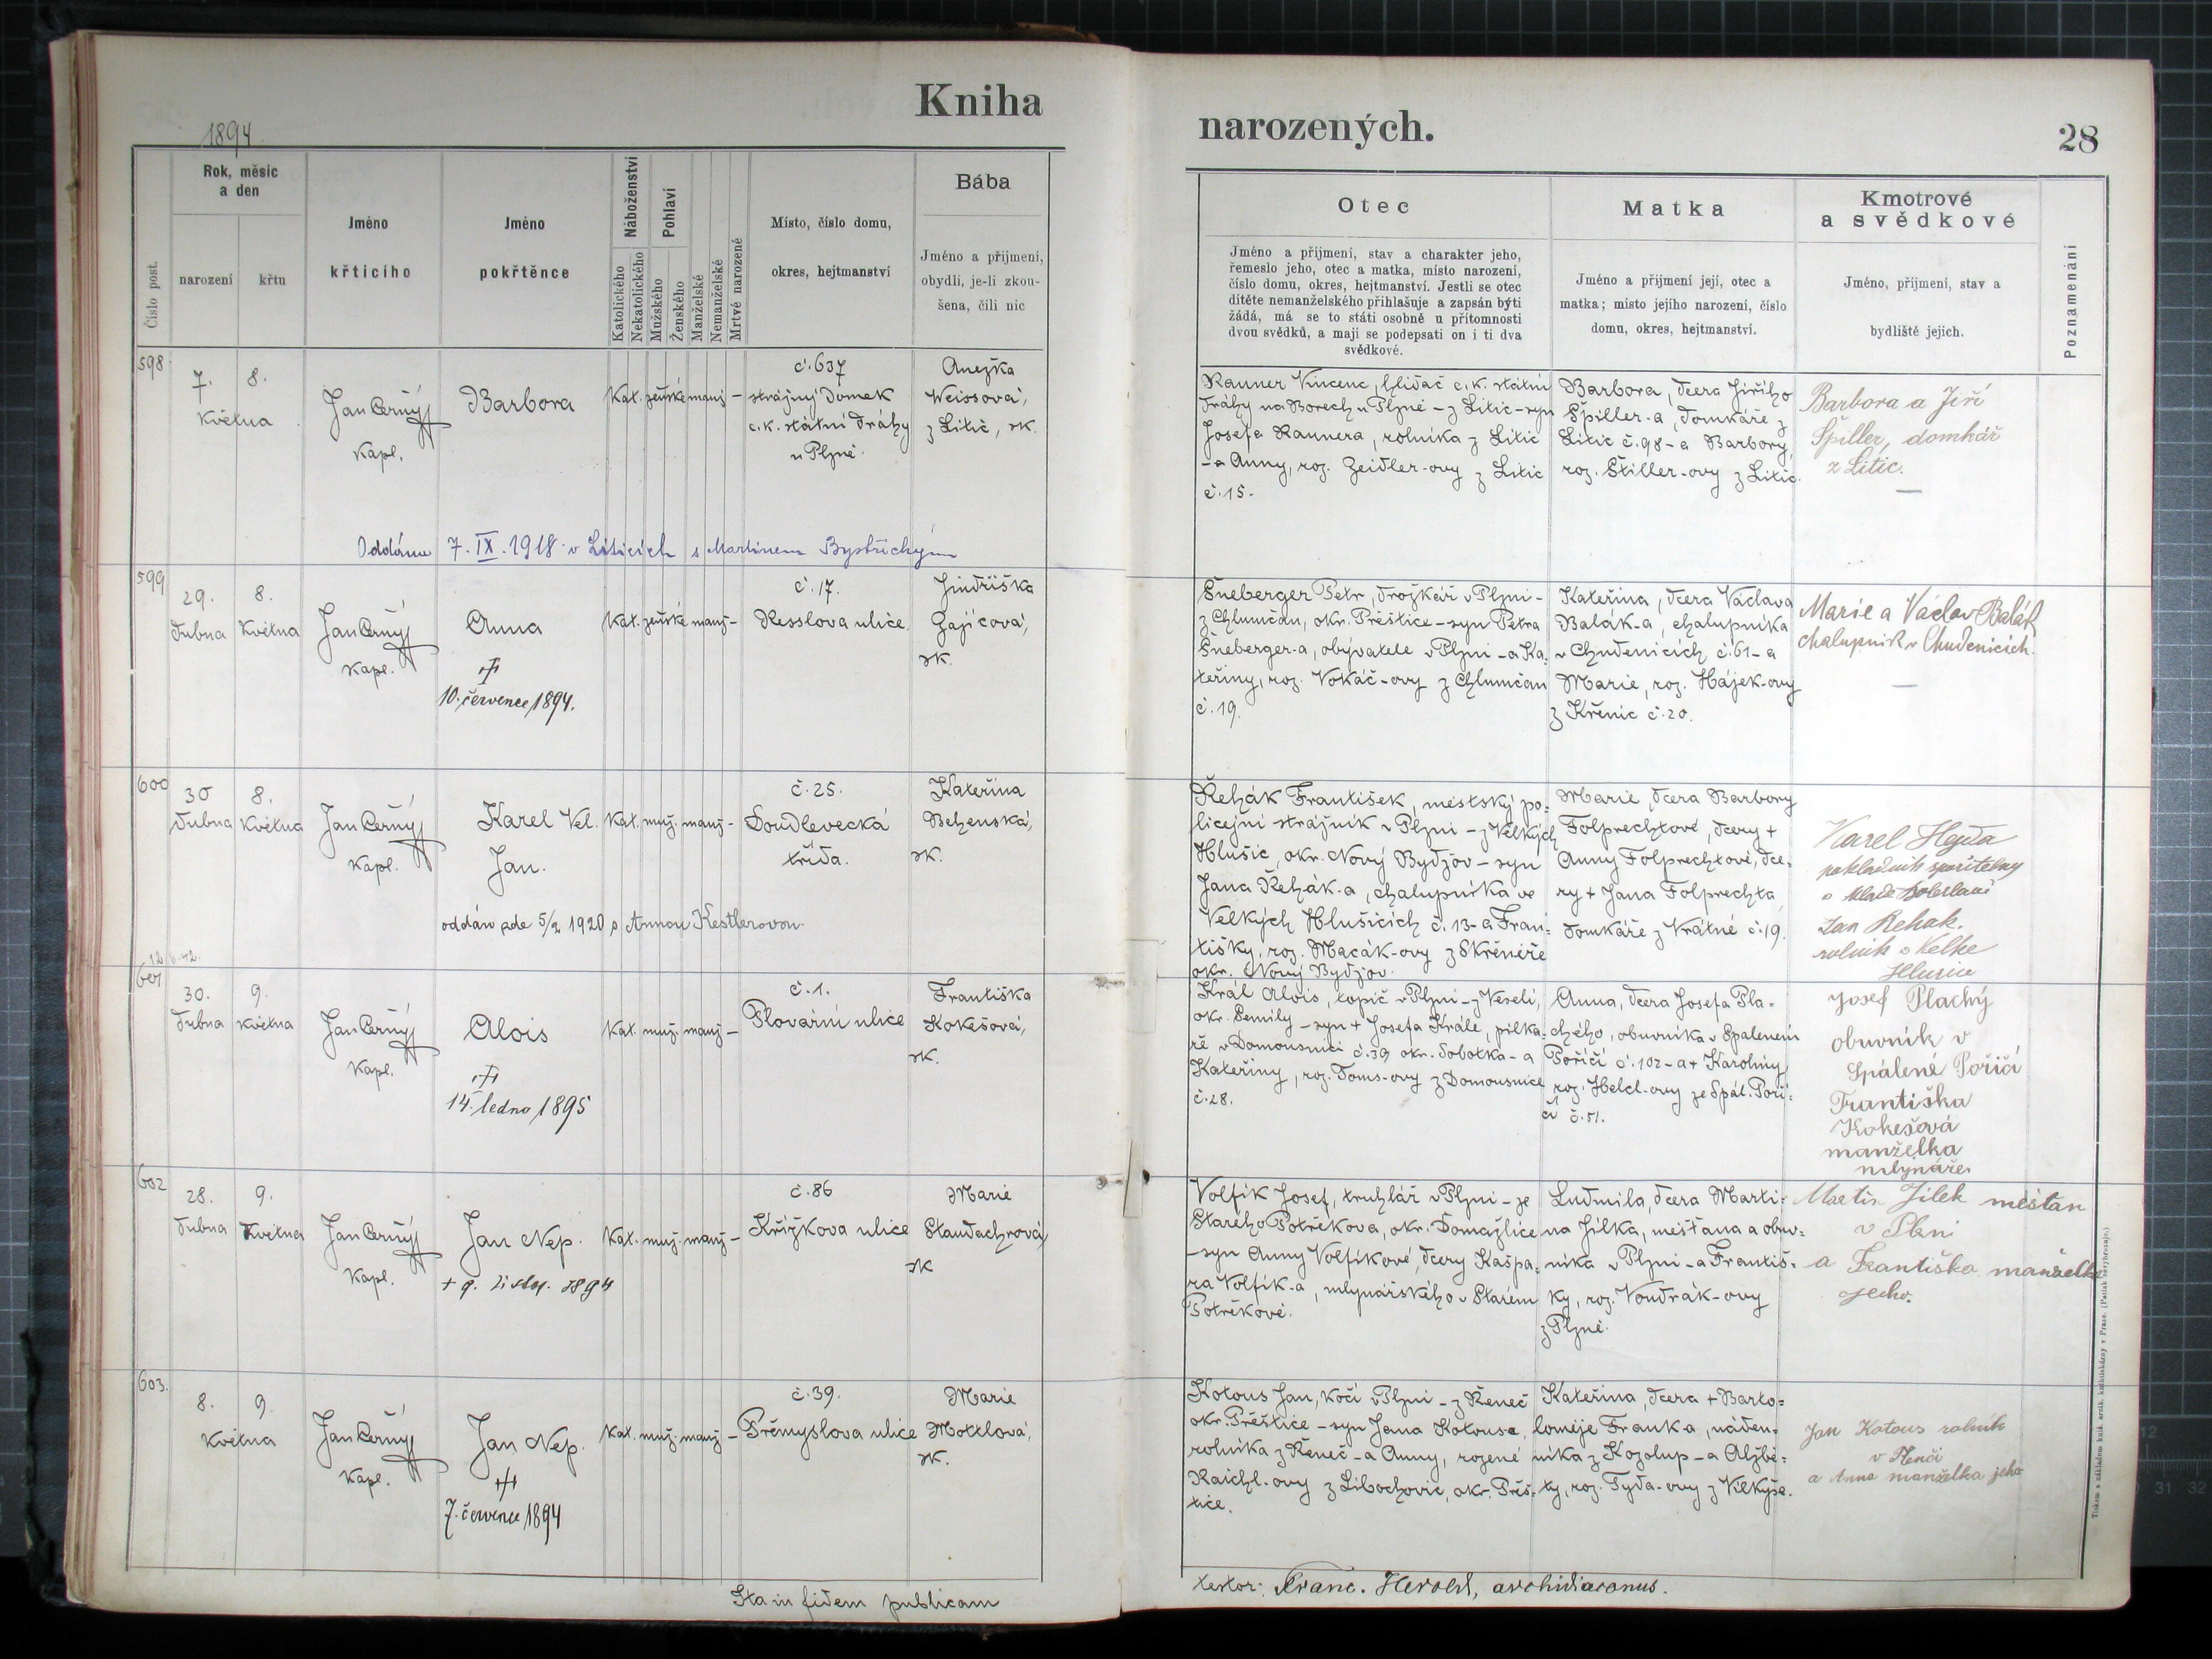 1894
Kniha
narozených.
28
Číslo post.
Rok, měsíc
a den
narození
křtu
Jméno
křtícího
Jméno
pokřtěnce
Náboženství
Katolického
Nekatolického
Pohlaví
Mužského
Ženského
Manželské
Nemanželské
Mrtvé narozené
Místo, číslo domu,
okres, hejtmanství
Bába
Jméno a přijmení,
obydlí, je-li zkou-
šena, čili nic
Otec
Jméno a příjmení, stav a charakter jeho,
řemeslo jeho, otec a matka, místo narození,
číslo domu, okres, hejtmanství. Jestli se otec
dítěte nemanželského přihlašuje a zapsán býti
žádá, má se to státi osobně u přítomnosti
dvou svědků, a mají se podepsati on i ti dva
svědkové.
Matka
Jméno a přijmení její, otec a
matka; místo jejího narození, číslo
domu, okres, hejtmanství.
Kmotrové
a svědkové
Jméno, přijmení, stav a
bydliště jejich.
Poznamenání
598
7. 8.
Května
Jan Černý
Kapl.
Barbora
Kat. ženské manž –
č. 637
strážný domek
c. k. státní dráhy
u Plzně.
Anežka
Weissová,
z Litic, zk.
Rauner Vincenc, hlídač c. k. státní
dráhy na Borech u Plzně – z Litic – syn
Josefa Raunera, rolníka z Litic
– a Anny, roz. Zeidler-ovy z Litic
č. 15.
Barbora, dcera Jiřího
Špiller-a, domkáře z
Litic č. 98 – a Barbory,
roz. Stiller-ovy z Litic.
Barbora a Jiří
Špiller, domkář
z Litic.
Oddána 7. IX. 1918 v Liticích s Martinem Bystřickým
599
29. 8.
Dubna Května
Jan Černý
Kapl.
Anna
10. července 1894.
Kat. ženské manž –
č. 17.
Resslova ulice
Jindřiška
Gajicová,
zk.
Šneberger Petr, drožkář v Plzni –
z Chlumčan, okr. Přeštice – syn Petra
Šneberger-a, obyvatele v Plzni – a Ka-
teřiny, roz. Vokáč-ovy z Chlumčan
č. 19.
Kateřina, dcera Václava
Balák-a, chalupníka
v Chudenicích č. 61 – a
Marie, roz. Hájek-ovy
z Křenic č. 20.
Marie a Václav Balák
chalupník v Chudenicích.
600
30 8.
Dubna Května
Jan Černý
Kapl.
Karel Vel.
Jan.
Kat. muž. manž –
č. 25.
Doudlevecká
třída.
Kateřina
Behenská,
zk.
Řehák František, městský po-
licejní strážník v Plzni – z Velkých
Hlušic, okr. Nový Bydžov – syn
Jana Řehák-a, chalupníka ve
Velkých Hlušicích č. 13 – a Fran-
tišky, roz. Macák-ovy z Skřeneře
okr. Nový Bydžov.
Marie, dcera Barbory
Folprechtové, dcery +
Anny Folprechtové, dce-
ry + Jana Folprechta
domkáře z Vrátné č. 19.
Karel Hejda
pokladník spořitelny
v Mladé Boleslavi
Jan Rehak.
rolník v Velke
Hlusice
oddán zde 5/2 1920 s Annou Kestlerovou.
601
30. 9.
Dubna Května
Jan Černý
Kapl.
Alois
14. ledna 1895
Kat. muž. manž –
č. 1.
Plovární ulice
Františka
Kokešová,
zk.
Král Alois, topič v Plzni – z Veselí,
okr. Semily – syn + Josefa Krále, pilka-
ře v Domousnici č. 39 okr. Sobotka – a
Kateřiny, roz. Toms-ovy z Domousnice
č. 28.
Anna, dcera Josefa Pla-
chého, obuvníka v Spáleném
Poříčí č. 102 – a + Karoliny
roz. Helcl-ovy ze Spál. Poří-
čí č. 51.
Josef Plachý
obuvník v
Spálené Poříčí
Františka
Kokešová
manželka
mlynáře
602
28. 9.
Dubna Května
Jan Černý
Kapl.
Jan Nep.
+ 9. listop. 1894
Kat. muž. manž –
č. 86
Křížkova ulice
Marie
Staudachrová,
zk
Volfík Josef, truhlář v Plzni – ze
Starého Potřekova, okr. Domažlice
– syn Anny Volfíkové, dcery Kašpa-
ra Volfík-a, mlynářského v Starém
Potřekově.
Ludmila, dcera Marti-
na Jílka, měšťana a obuv-
níka v Plzni – a Františ-
ky, roz. Vondrák-ovy
z Plzně.
Martin Jílek měštan
v Plzni
a Františka manželka
jeho.
603.
8. 9.
Května
Jan Černý
Kapl.
Jan Nep.
7. července 1894
Kat. muž. manž –
č. 39.
Přemyslova ulice
Marie
Mottlová,
zk.
Kotous Jan, kočí v Plzni – z Řeneč
okr. Přeštice – syn Jana Kotousa,
rolníka z Řeneč – a Anny, rozené
Raichl-ovy z Libochovic, okr. Přeš-
tice.
Kateřina, dcera + Barto-
loměje Frank-a, náden-
níka z Kozolup – a Alžbě-
ty, roz. Tyda-ovy z Vilkýše.
Jan Kotous rolník
v Řenči
a Anna manželka jeho
Ita in fidem publicam
testor: Franc. Herold, archidiaconus.